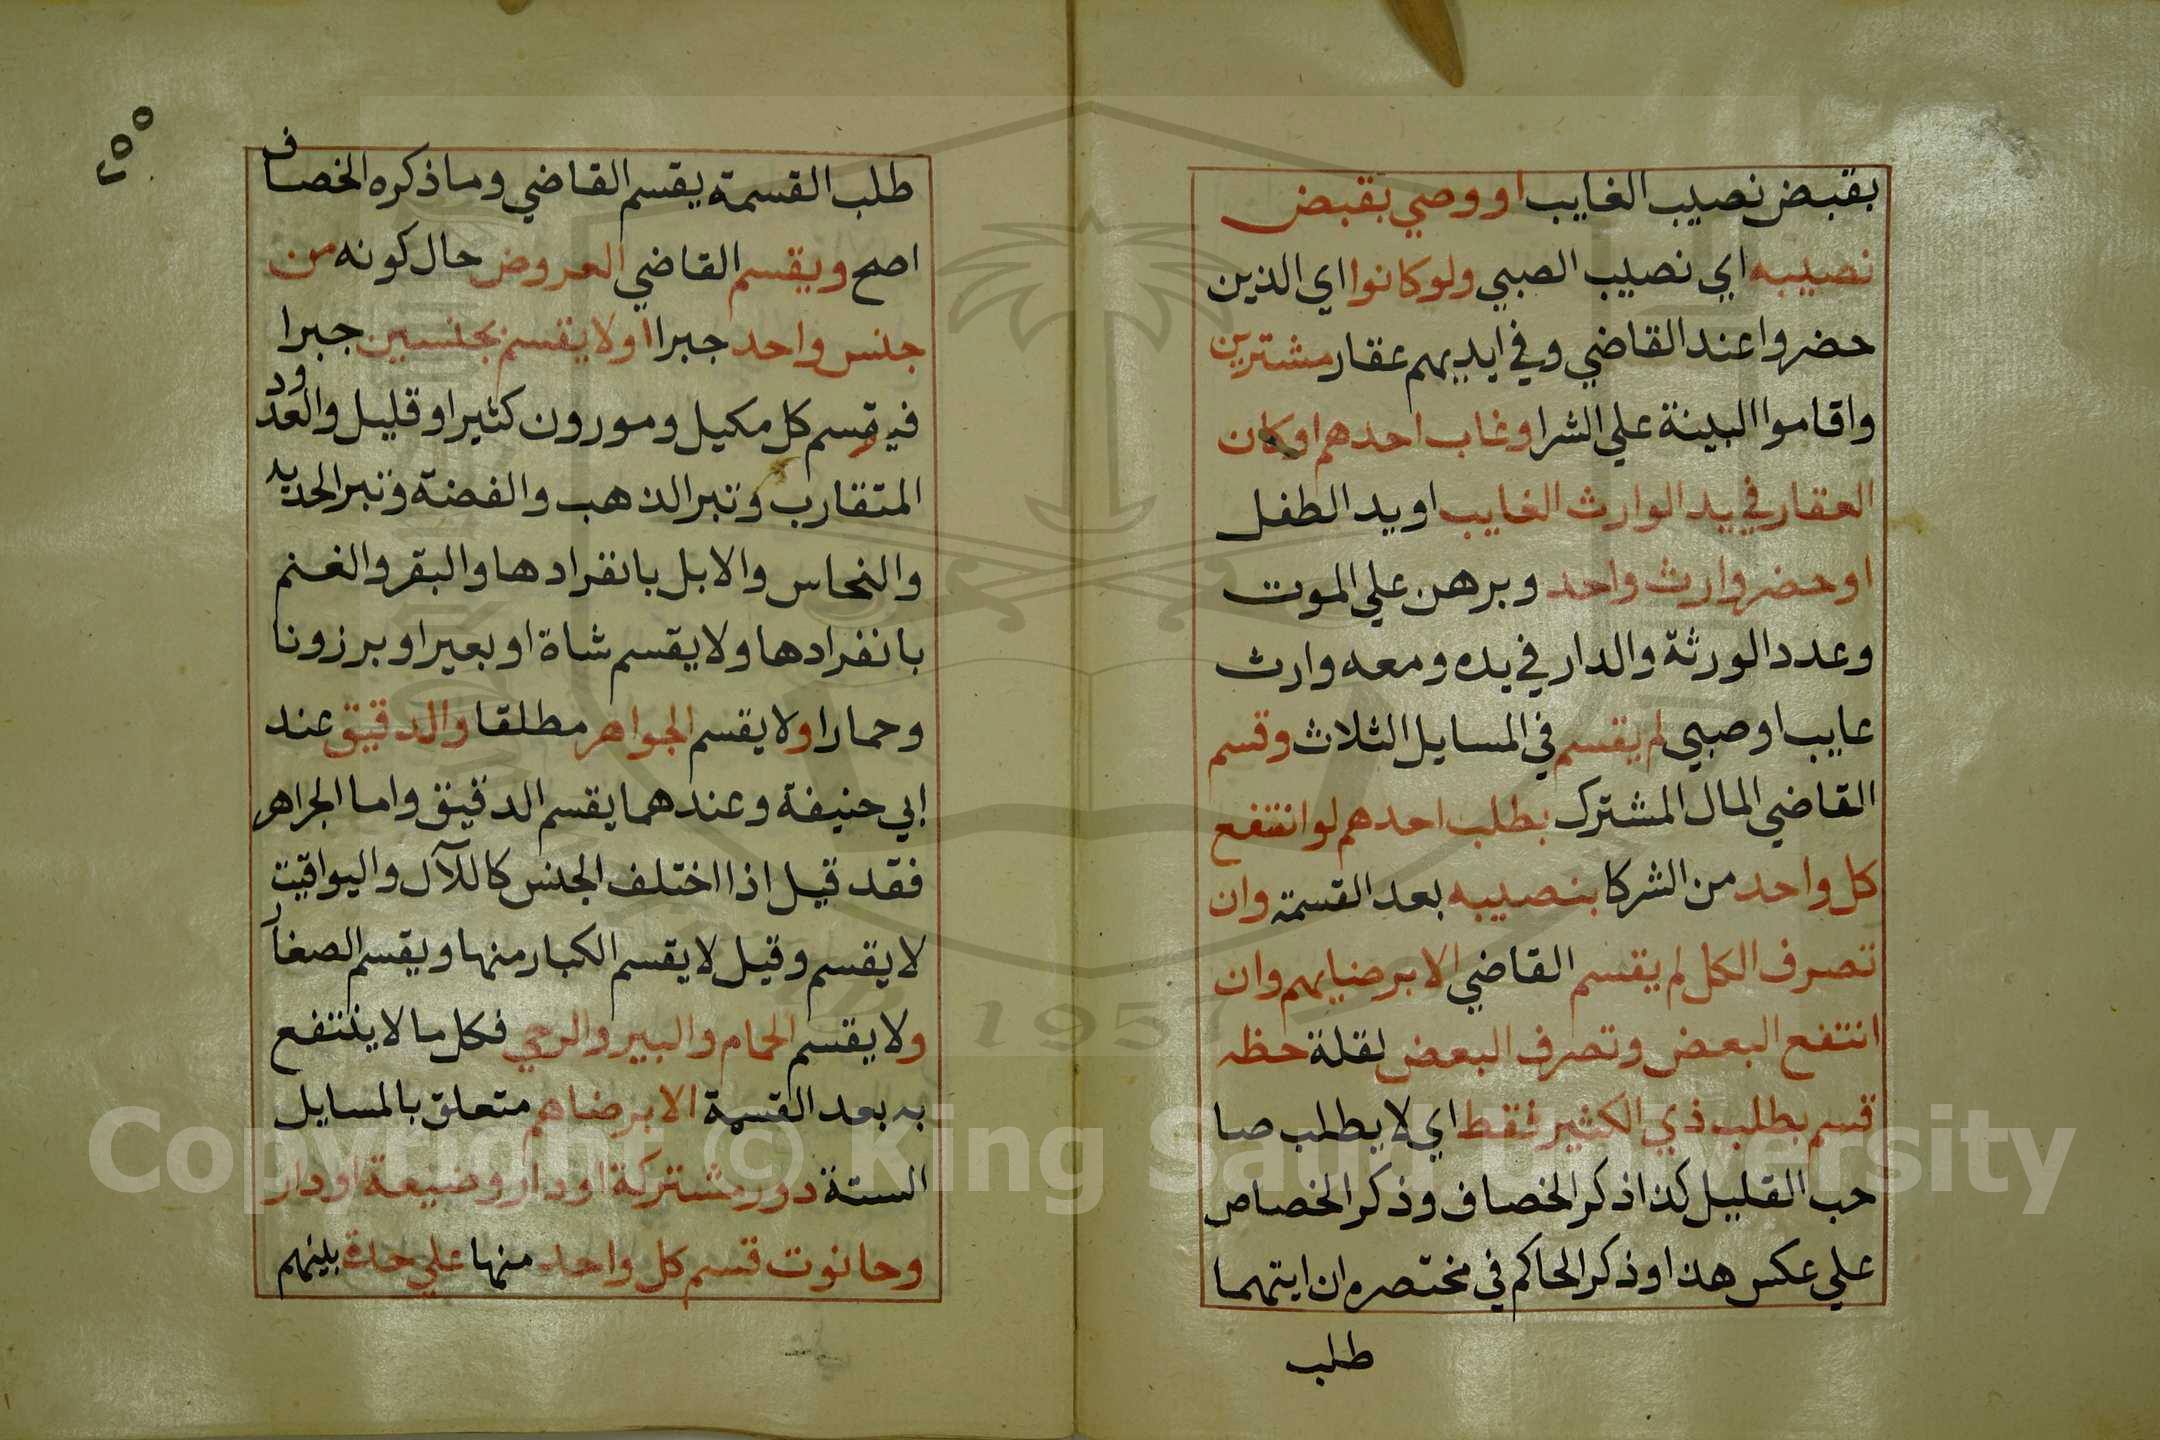 بقبض نصيب الغايب او وصي بقبض
نصيبه اي نصيب الصبي ولو كانوا اي الذين
حضروا عند القاضي وفي ايديهم عقار مشترين
واقاموا البينة علي الشرا وغاب احدهم او كان
العقار في يد الوارث الغايب او يد الطفل
او حضر وارث واحد وبرهن علي الموت
وعدد الورثة والدار في يده ومعه وارث
غايب او صبي لم يقسم في المسايل الثلاث وقسم
القاضي المال المشترك بطلب احدهم لو انتفع
كل واحد من الشركا بنصيبه بعد القسمة وان
تصرف الكل لم يقسم القاضي الا برضايهم وان
انتفع البعض وتصرف البعض لقلة حظه
قسم بطلب ذي الكثير فقط اي لا يطلب صا
حب القليل كذا ذكر الخصاف وذكر الخصاص
علي عكس هذا وذكر الحاكم في مختصره ان ايتهما
طلب
٢٥٥
طلب القسمة يقسم القاضي وما ذكره الخصاف
اصح ويقسم القاضي العروض حال كونه من
جنس واحد جبرا اولا يقسم بجنسين جبرا
فيقسم كل مكيل ومورون كثيرا وقليل والعدود
المتقارب وتبر الذهب والفضة وتبر الحديد
والنحاس والابل بانفرادها والبقر والغنم
بانفرادها ولا يقسم شاة او بعيرا وبرزونا
وحمارا ولا يقسم الجواهر مطلقا والدقيق عند
ابي حنيفة وعندهما يقسم الدقيق واما الجراهر
فقد قيل اذا اختلف الجنس كاللآل واليواقيت
لا يقسم وقيل لا يقسم الكبار منها ويقسم الصغار
ولا يقسم الحمام والبير والرحي فكل ما لا ينتفع
به بعد القسمة الا برضاهم متعلق بالمسايل
الستة دور مشتركة او دار وضيعة او دار
وحانوت قسم كل واحد منها علي حدة بينهم
Copyright © King Saud University
1957